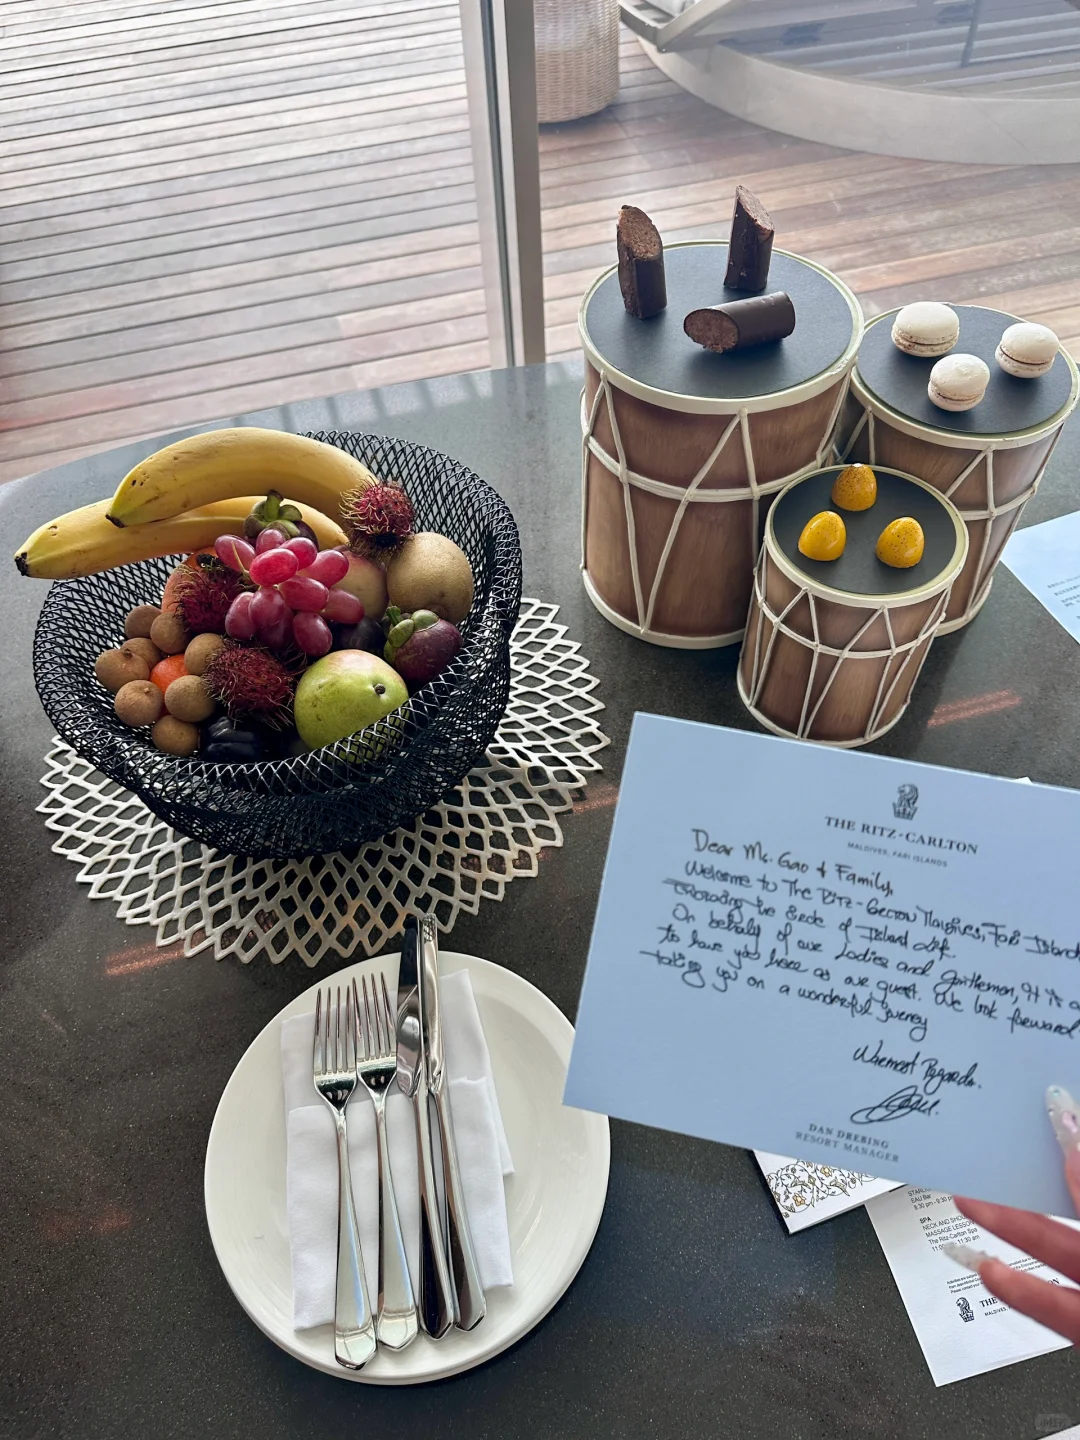 THE RITZ-CARLTON
MALDIVES, FARI ISLANDS
Dear Ms. Gao & Family,
Welcome to The Ritz-Carlton Maldives, Fari Islands
the of Island Life
On behalf of our Ladies and Gentlemen, it is a
to have you here as our guest. We look forward
taking you on a wonderful journey
Warmest Regards.
DAN DREBING
RESORT MANAGER
EAU Bar
8:30 pm - 9:30 p
SPA
NECK AND SHOU
MASSAGE LESSO
The Ritz-Carlton Spa
11:30 am
THE
MALDIVES,